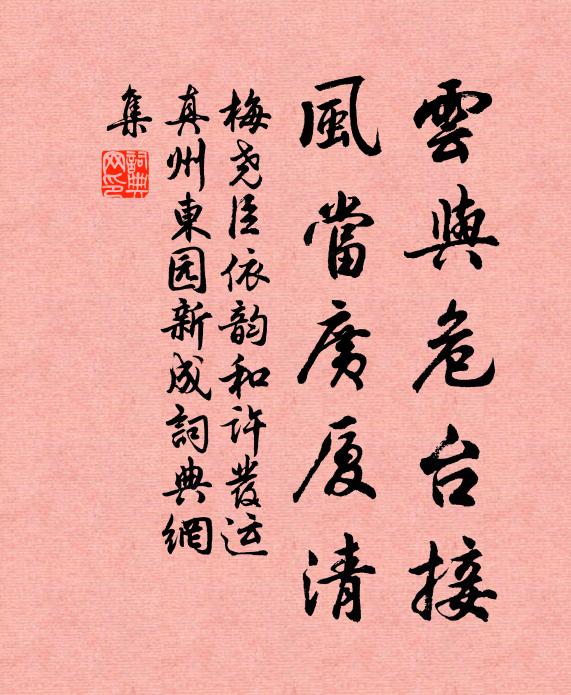 雲與危台接
風當廣厦清
梅尧臣依韵和许發运
真州東园新成詞典網
集
詞典
网印